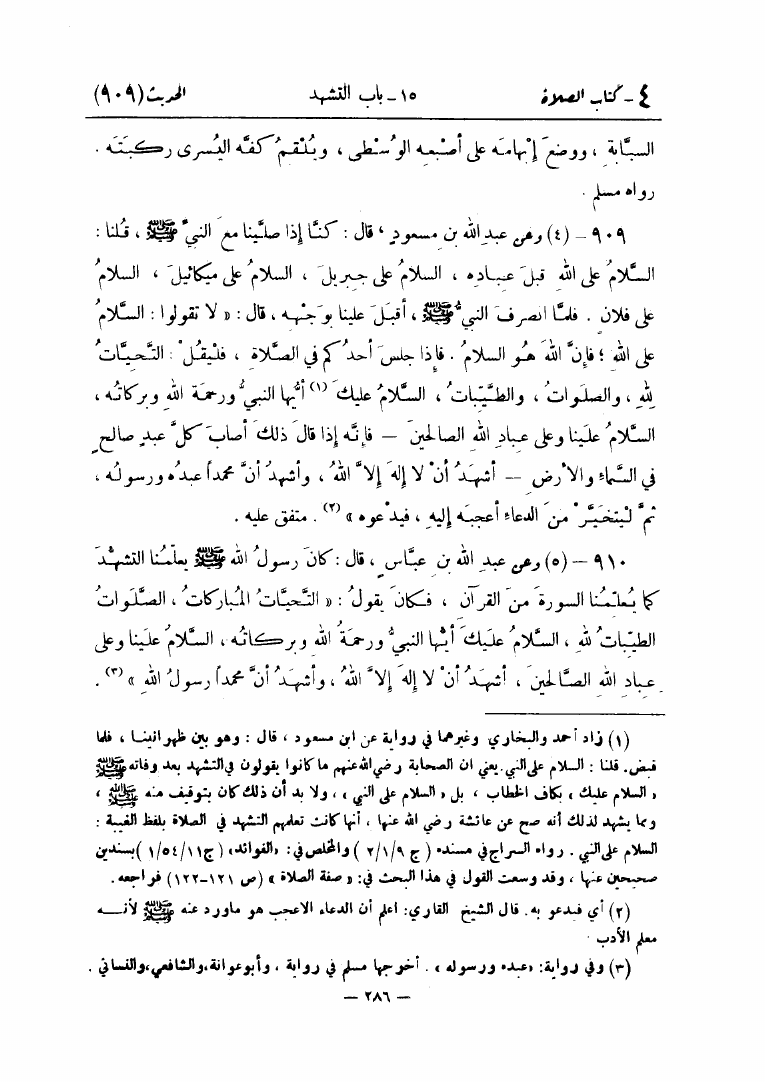 ٤ - كتاب الصلاة ١٥ - باب التشهد الحديث (٩٠٩)
السبَّابة ، ووضعَ إبهامَه على أصبعِه الوُسْطى ، ويُلْقِمُ كفَّه اليُسرى ركبتَه .
رواه مسلم .
٩٠٩ - (٤) وعن عبدِ الله بنِ مسعودٍ ، قال : كنَّا إذا صلَّينا معَ النبيِّ ﷺ ، قُلنا :
السَّلامُ على اللهِ قبلَ عبادِه ، السلامُ على جبريلَ ، السلامُ على ميكائيلَ ، السلامُ
على فلان . فلمَّا انصرفَ النبيُّ ﷺ ، أقبَلَ علينا بوَجْهِه ، قال : « لا تقولوا : السَّلامُ
على الله ؛ فإنَّ اللهَ هُو السلامُ . فإذا جلسَ أحدُكم في الصَّلاةِ ، فليقُلْ : التَّحيَّاتُ
للهِ ، والصلَواتُ ، والطَّيّباتُ ، السَّلامُ عليكَ (١) أيُّها النبيُّ ورحمةُ اللهِ وبركاتُه ،
السَّلامُ علَينا وعلى عبادِ اللهِ الصالحينَ — فإنَّه إذا قالَ ذلكَ أصابَ كلَّ عبدٍ صالحٍ
في السَّماءِ والأرضِ — أشهَدُ أنْ لا إلهَ إلاَّ اللهُ ، وأشهدُ أنَّ محمداً عبدُه ورسولُه ،
ثمَّ لْيتخَيَّرْ منَ الدعاءِ أعجبَه إليهِ ، فيدْعوه » (٢) . متفق عليه .
٩١٠ - (٥) وعن عبدِ الله بنِ عبَّاسٍ ، قال : كانَ رسولُ الله ﷺ يعلّمُنا التشهُّدَ
كما يُعلّمُنا السورةَ منَ القرآنِ ، فكانَ يقولُ : « التَّحيَّاتُ المُباركاتُ ، الصَّلَواتُ
الطيّباتُ للهِ ، السلامُ عليكَ أيُّها النبيُّ ورحمةُ اللهِ وبركاتُه ، السلامُ علَينا وعلى
عبادِ اللهِ الصَّالحينَ ، أشهَدُ أنْ لا إلهَ إلاَّ اللهُ ، وأشهدُ أنَّ محمداً رسولُ اللهِ » (٣) .
(١) زاد أحمد والبخاري وغيرهما في رواية عن ابن مسعود ، قال : وهو بين ظهرانينا ، فلما
قبض. قلنا : السلام على النبي. يعني ان الصحابة رضي الله عنهم ما كانوا يقولون في التشهد بعد وفاته ﷺ
« السلام عليك » بكاف الخطاب ، بل « السلام على النبي » ، ولا بد أن ذلك كان بتوقيف منه ﷺ ،
ومما يشهد لذلك أنه صح عن عائشة رضي الله عنها ، أنها كانت تعلمهم التشهد في الصلاة بلفظ الغيبة :
السلام على النبي . رواه السراج في مسنده ( ج ٢/١/٩ ) والمخلص في: «الفوائد» ( ج١١/٥٤/١ )بسندين
صحيحين عنها ، وقد وسعت القول في هذا البحث في: « صفة الصلاة » (ص ١٢١-١٢٢) فراجعه .
(٢) أي فيدعو به. قال الشيخ القاري: اعلم أن الدعاء الاعجب هو ماورد عنه ﷺ لأنه
معلم الأدب .
(٣) وفي رواية: «عبده ورسوله » . أخرجها مسلم في رواية ، وأبو عوانة،والشافعي،والنسائي .
— ٢٨٦ —